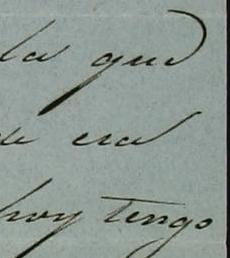 la que
de era
hoy tengo